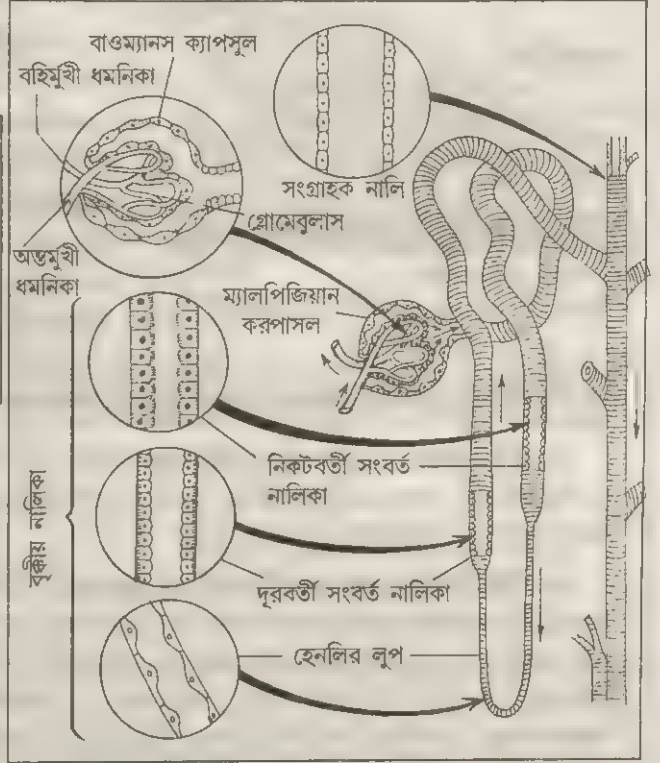 বাওম্যানস ক্যাপসুল
বহির্মুখী ধমনিকা
সংগ্রাহক নালি
গ্লোমেবুলাস
অন্তমুখী
ধমনিকা
ম্যালপিজিয়ান
করপাসল
নিকটবর্তী সংবর্ত
নালিকা
বৃক্কীয় নালিকা
দূরবর্তী সংবর্ত নালিকা
হেনলির লুপ